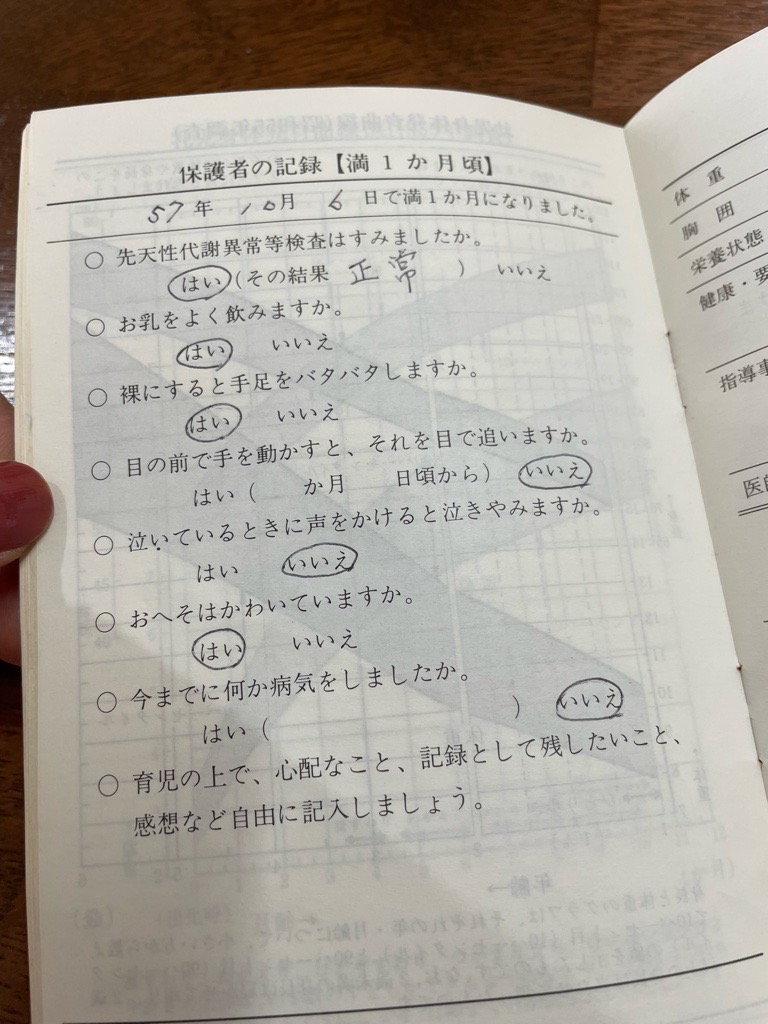 保護者の記録【満1か月頃】
57年 10月 6日で満1か月になりました。
○ 先天性代謝異常等検査はすみましたか。
はい(その結果 正常 ) いいえ
○ お乳をよく飲みますか。
はい いいえ
○ 裸にすると手足をバタバタしますか。
はい いいえ
○ 目の前で手を動かすと、それを目で追いますか。
はい( か月 日頃から) いいえ
○ 泣いているときに声をかけると泣きやみますか。
はい いいえ
○ おへそはかわいていますか。
はい いいえ
○ 今までに何か病気をしましたか。
はい( ) いいえ
○ 育児の上で、心配なこと、記録として残したいこと、
感想など自由に記入しましょう。
体重
胸囲
栄養状態
健康・要
指導事
医師